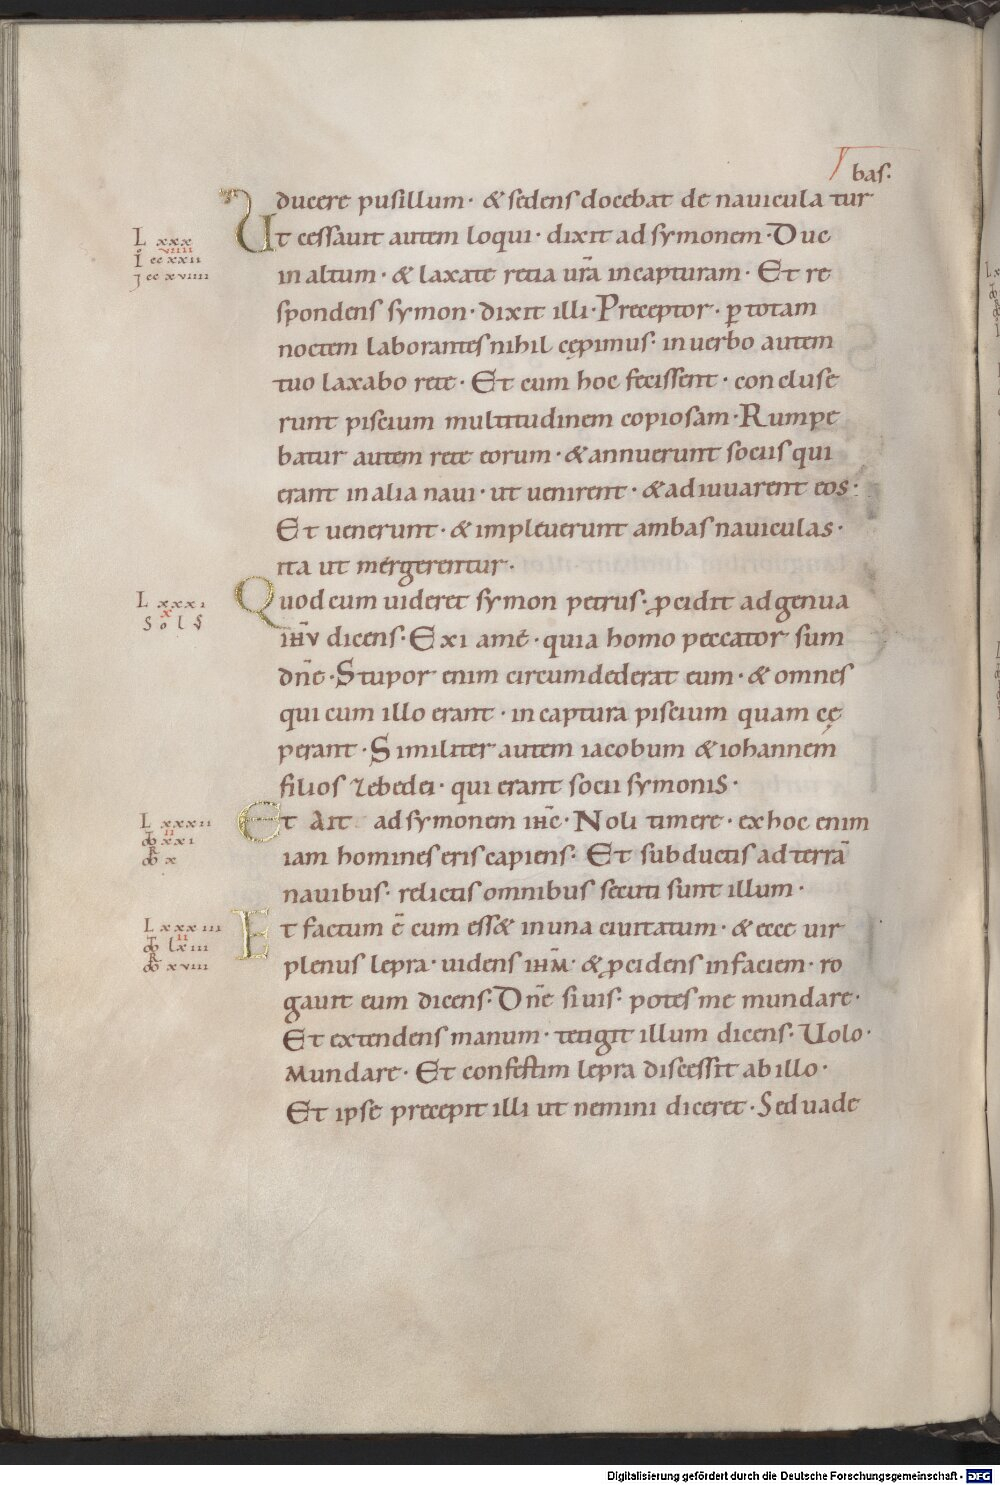 bas.
ducere pusillum· & sedens docebat de nauicula tur
L xxx
Ut cessauit autem loqui· dixit ad symonem· Duc
VIIII
I cc xxii
in altum· & laxate retia urā in capturam· Et re
J cc xviiii
spondens symon· dixit illi· Preceptor· p̱ totam
noctem laborantes nihil cępimus· in uerbo autem
tuo laxabo rete· Et cum hoc fecissent· concluse
runt piscium multitudinem copiosam· Rumpe
batur autem rete eorum· & annuerunt sociis qui
erant in alia naui· ut uenirent· & adiuuarent eos·
Et uenerunt· & impleuerunt ambas nauiculas·
ita ut mergerentur·
L xxxi
Quod cum uideret symon petrus· ꝓcidit ad genua
x
S o l S
ih̄v dicens· Exi a me· quia homo peccator sum
dn̄e· Stupor enim circumdederat eum· & omnes
qui cum illo erant· in captura piscium quam cę
perant· Similiter autem iacobum & iohannem
filios zebedei· qui erant socii symonis·
L xxxii
Et Ait ad symonem ih̄c· Noli timere· ex hoc enim
II
xxi
R
x
iam homines eris capiens· Et subductis ad terrā
nauibus· relictis omnibus secuti sunt illum·
L xxxiii
Et factum ē cum ess& in una ciuitatum· & ecce uir
II
lxiii
R
xviii
plenus lepra· uidens ih̄m· & ꝓcidens in faciem· ro
gauit eum dicens· Dn̄e si uis· potes me mundare·
Et extendens manum· tetigit illum dicens· Uolo·
Mundare· Et confestim lepra discessit ab illo·
Et ipse precepit illi ut nemini diceret· Sed uade
Digitalisierung gefördert durch die Deutsche Forschungsgemeinschaft - DFG